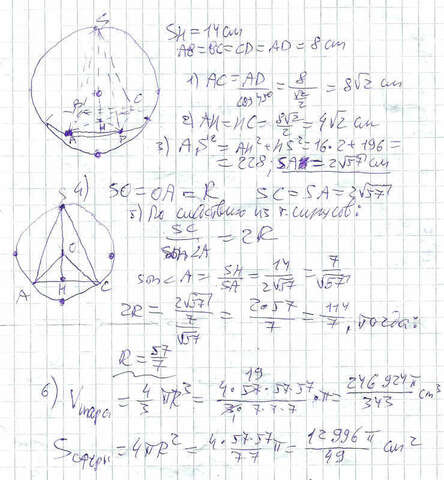 S
8
A
H
P
C
SH = 14 см
AB = BC = CD = AD = 8 см
1) AC = AD/cos 45° = 8/(√2/2) = 8√2 см
2) AH = HC = 8√2/2 = 4√2 см
3) AS² = AH² + HS² = 16·2 + 196 =
= 228, SA = 2√57 см
4) SO = OA = R SC = SA = 2√57
S
O
A
H
C
5) По следствию из т. синусов:
SC/sin∠A = 2R
sin∠A = SH/SA = 14/2√57 = 7/√57
2R = 2√57/(7/√57) = 2·57/7 = 114/7, тогда:
R = 57/7
6) Vшара = 4/3 πR³ = 4·57·57·57/3·7·7·7 · π = 246924π/343 см³
19
1
Sсферы = 4πR² = 4·57·57/7·7 π = 12996π/49 см²